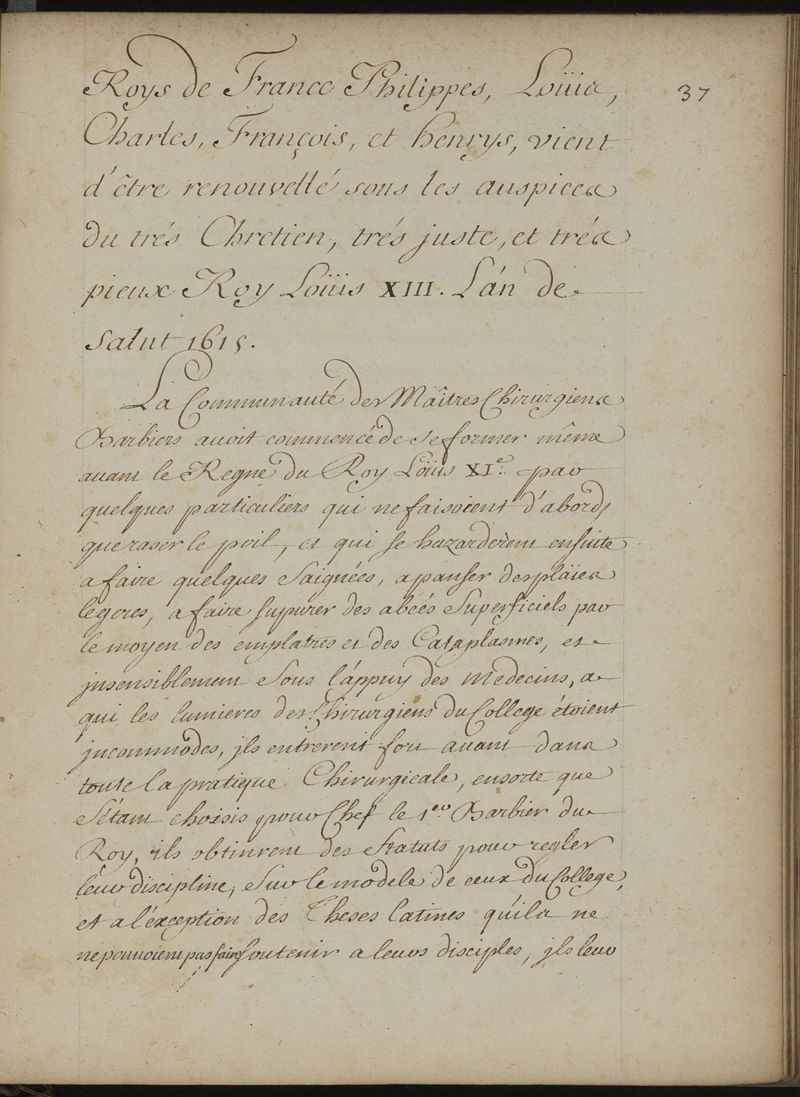 Roys de France Philippes, Loüis,
37
Charles, François, et henrys, vient
d'être renouvellé sous les auspices
du trés Chretien, trés juste, et trés
pieux Roy Loüis XIII. L'an de
salut 1615.
La Communauté des Maîtres Chirurgiens
Barbiers avoit commencé de se former même
avant le Regne du Roy Loüis XIe. par
quelques particuliers qui ne faisoient d'abord,
que raser le poil, et qui se hazarderent ensuite
a faire quelques Saignées, a panser des plaïes
legeres, a faire supurer des abcés Superficiels par
le moyen des emplatres et des Cataplasmes, et
jnsensiblement Sous l'appuy des Medecins, a
qui les lumieres des Chirurgiens du College étoient
jncommodes, jls entrerent fort avant dans
toute la pratique Chirurgicale, ensorte que
S'étant choisis pour Chef le 1er. Barbier du
Roy, ils obtinrent des Statuts pour regler
leur discipline, Sur le modele de ceux du College,
et a l'éxception des Theses latines qu'ils ne
ne pouvoient pas faire soutenir a leurs disciples, jls leur